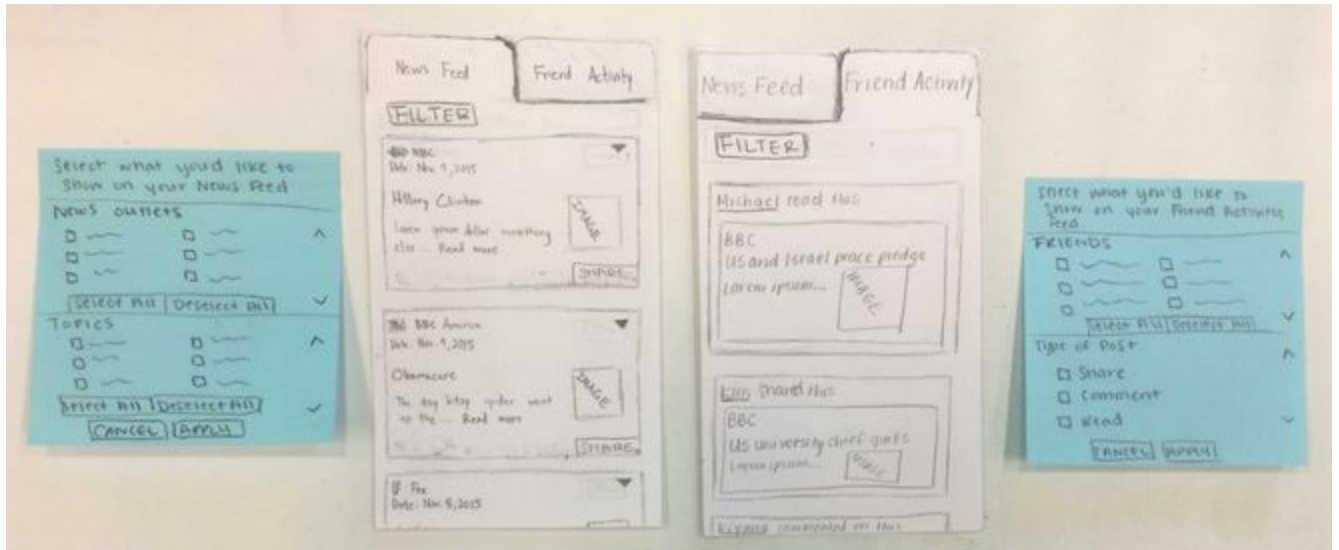 Select what you'd like to
show on your News Feed
News outlets
Select All Deselect All
TOPICS
Select All Deselect All
CANCEL APPLY
News Feed Friend Activity
FILTER
Date: Nov. 9, 2015
Hillary Clinton
IMAGE
else... Read more
SHARE
BBC America
Date: Nov. 9, 2015
Obamacare
IMAGE
The itsy bitsy spider went
up the... Read more
SHARE
Fox
Date: Nov. 8, 2015
News Feed Friend Activity
FILTER
Michael read this
BBC
US and Israel peace pledge
Lorem ipsum...
IMAGE
Kim shared this
BBC
US university chief quits
Lorem ipsum...
IMAGE
commented on this
Select what you'd like to
show on your Friend Activity
Feed
FRIENDS
Select All Deselect All
Type of Post
Share
Comment
Read
CANCEL APPLY